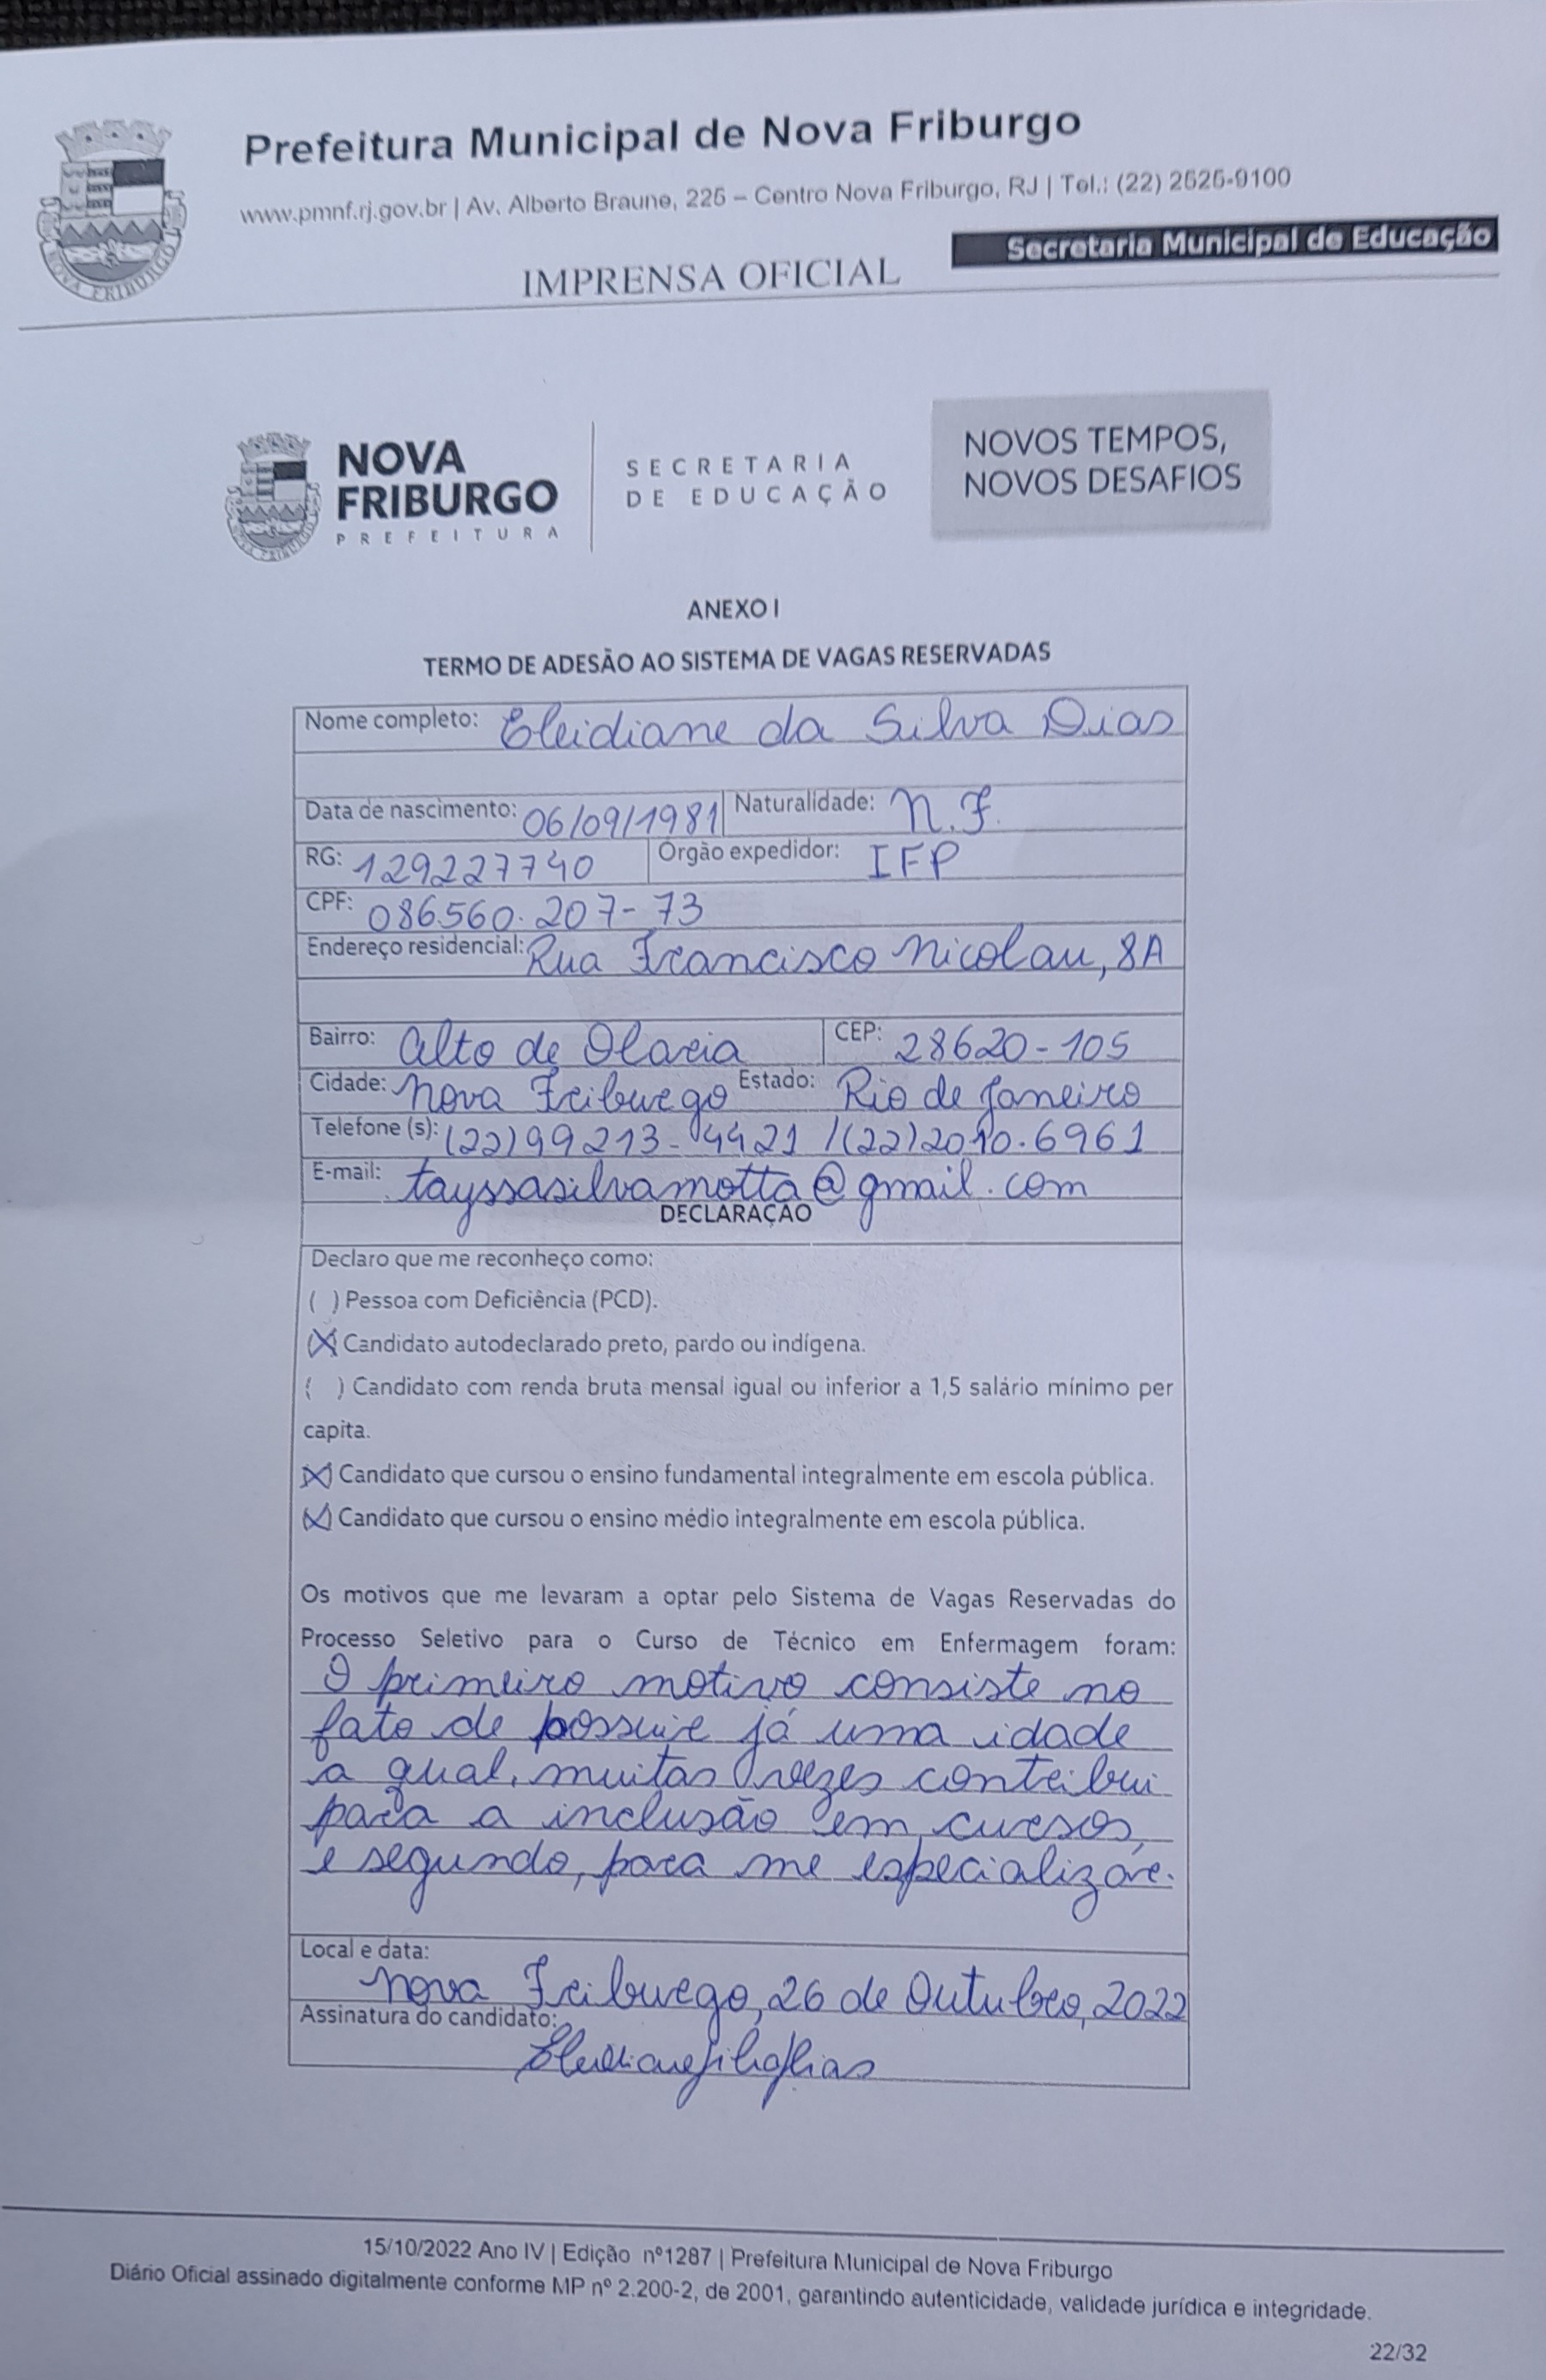 Prefeitura Municipal de Nova Friburgo
www.pmnf.rj.gov.br | Av. Alberto Braune, 225 – Centro Nova Friburgo, RJ | Tel.: (22) 2525-9100
Secretaria Municipal de Educação
IMPRENSA OFICIAL
NOVA FRIBURGO
NOVA
FRIBURGO
PREFEITURA
SECRETARIA
DE EDUCAÇÃO
NOVOS TEMPOS,
NOVOS DESAFIOS
ANEXO I
TERMO DE ADESÃO AO SISTEMA DE VAGAS RESERVADAS
Nome completo: Cleidiane da Silva Dias
Data de nascimento: 06/09/1981 Naturalidade: N.F.
RG: 129227740 Órgão expedidor: IFP
CPF: 086560.207-73
Endereço residencial: Rua Francisco Nicolau, 8A
Bairro: Alto de Olaria CEP: 28620-105
Cidade: Nova Friburgo Estado: Rio de Janeiro
Telefone (s): (22)99213-4421 /(22)2010.6961
E-mail: tayssasilvamotta@gmail.com
DECLARAÇÃO
Declaro que me reconheço como:
( ) Pessoa com Deficiência (PCD).
(X) Candidato autodeclarado preto, pardo ou indígena.
( ) Candidato com renda bruta mensal igual ou inferior a 1,5 salário mínimo per
capita.
(X) Candidato que cursou o ensino fundamental integralmente em escola pública.
(X) Candidato que cursou o ensino médio integralmente em escola pública.
Os motivos que me levaram a optar pelo Sistema de Vagas Reservadas do
Processo Seletivo para o Curso de Técnico em Enfermagem foram:
O primeiro motivo consiste no
fato de possuir já uma idade
a qual, muitas vezes contribui
para a inclusão em cursos,
e segundo, para me especializar.
Local e data:
Nova Friburgo, 26 de Outubro, 2022
Assinatura do candidato:
15/10/2022 Ano IV | Edição nº1287 | Prefeitura Municipal de Nova Friburgo
Diário Oficial assinado digitalmente conforme MP nº 2.200-2, de 2001, garantindo autenticidade, validade jurídica e integridade.
22/32